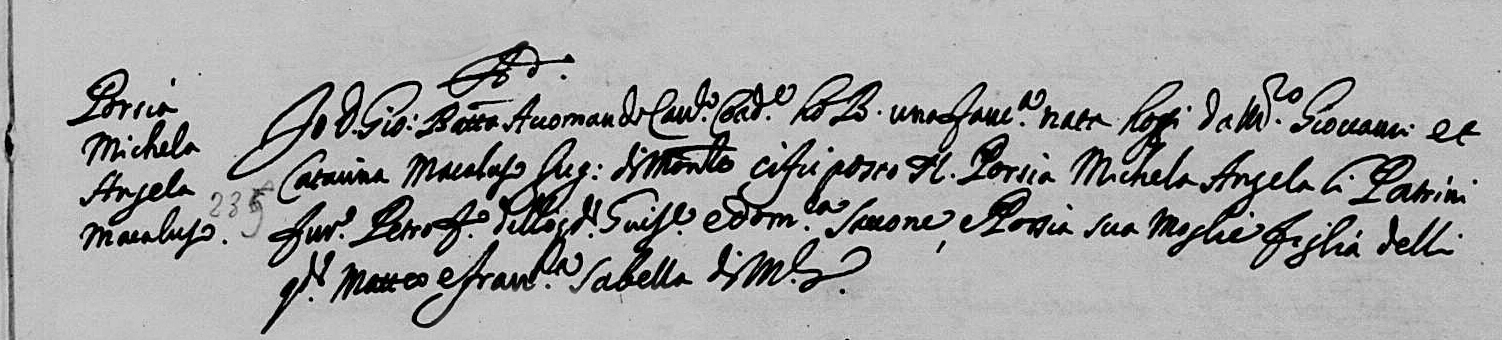 Ad.
Porsia
Michela
Angela
Macaluso.
235
Io D. Gio: Batta Accomando Capp. Cod. ho B. una fanc.a nata hoggi da M.ro Giovanni et
Catarina Macaluso Iug: di Monte ci fu posto N. Porsia Michela Angela li Patrini
fur. Petro f. delli qd. Gius.e e dom.ca Saccone, e Porsia sua Moglie figlia delli
qd. Matteo e fran.ca Sabella di M.